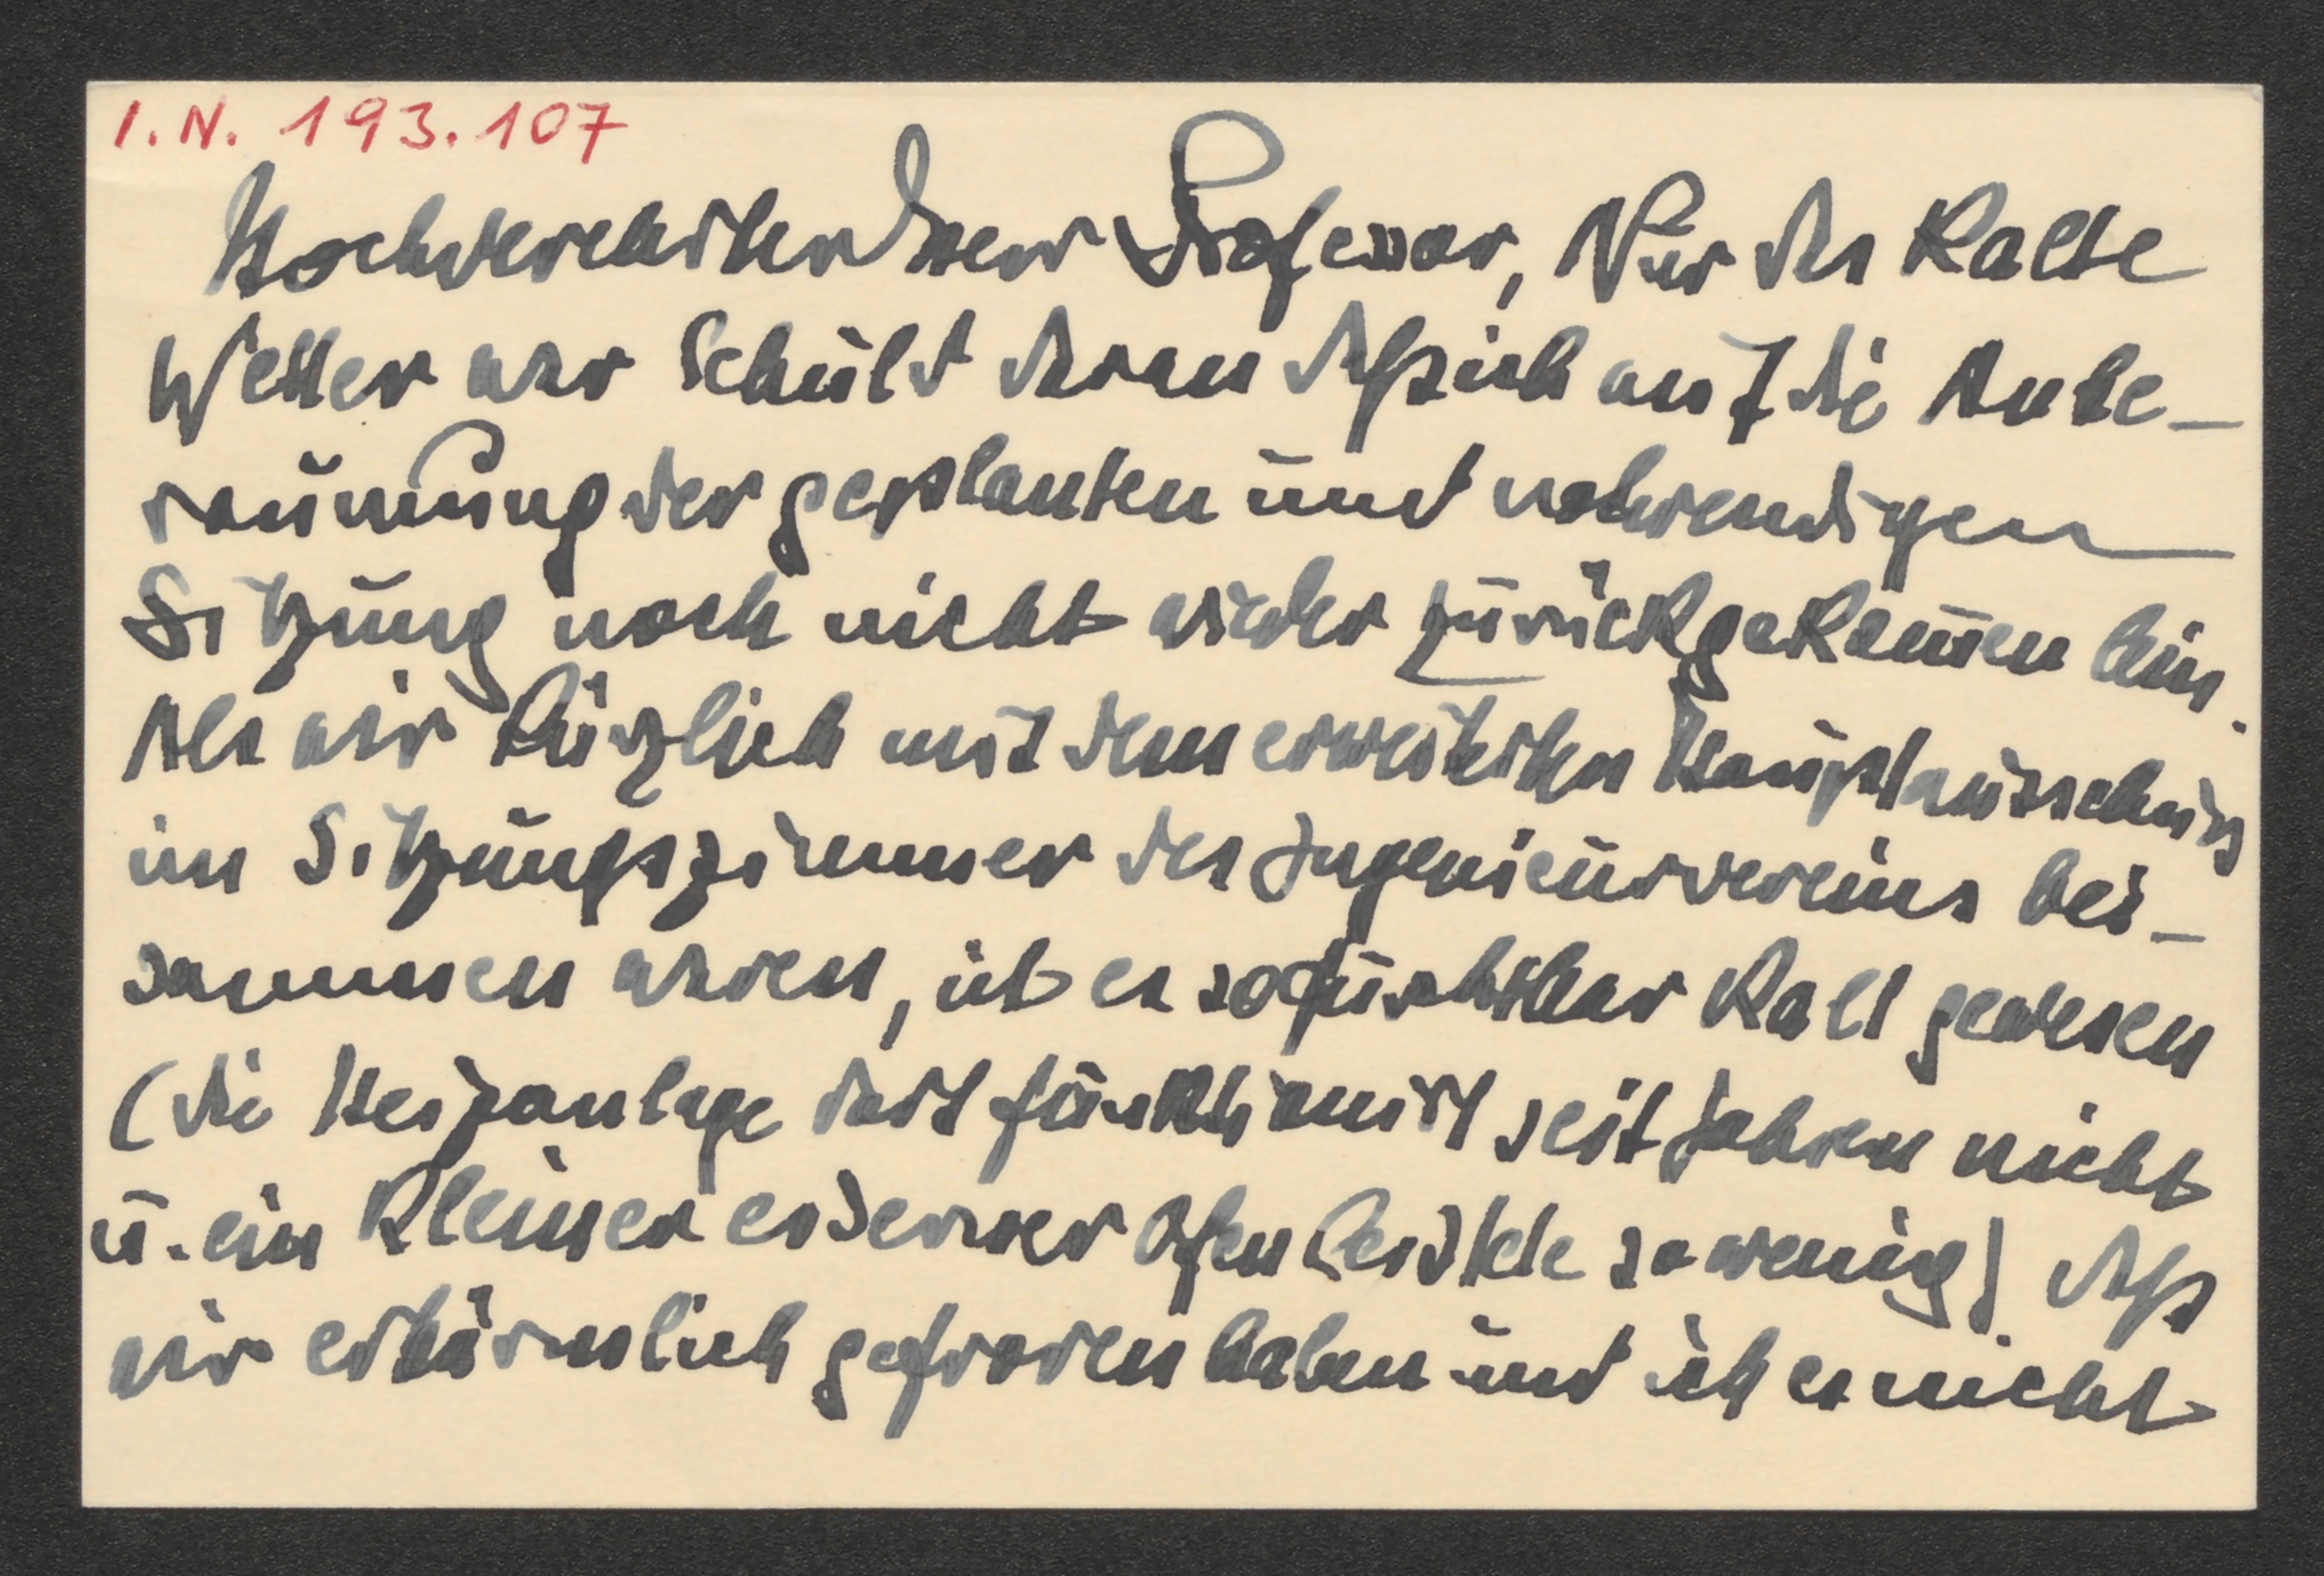 I.N. 193.107
Hochverehrter Herr Professor, Nur das kalte
Wetter war schuld daran daß ich auf die Anbe-
raumung der geplanten und notwendigen
Sitzung noch nicht wieder zurückgekommen bin.
Als wir kürzlich mit dem erweiterten Hauptausschuß
im Sitzungszimmer des Ingenieurvereins bei-
sammen waren, ist es so furchtbar kalt gewesen
(die Heizanlage dort funktioniert seit Jahren nicht
u. ein kleiner eiserner Ofen leistete so wenig) daß
wir erbärmlich gefroren haben und ich es nicht